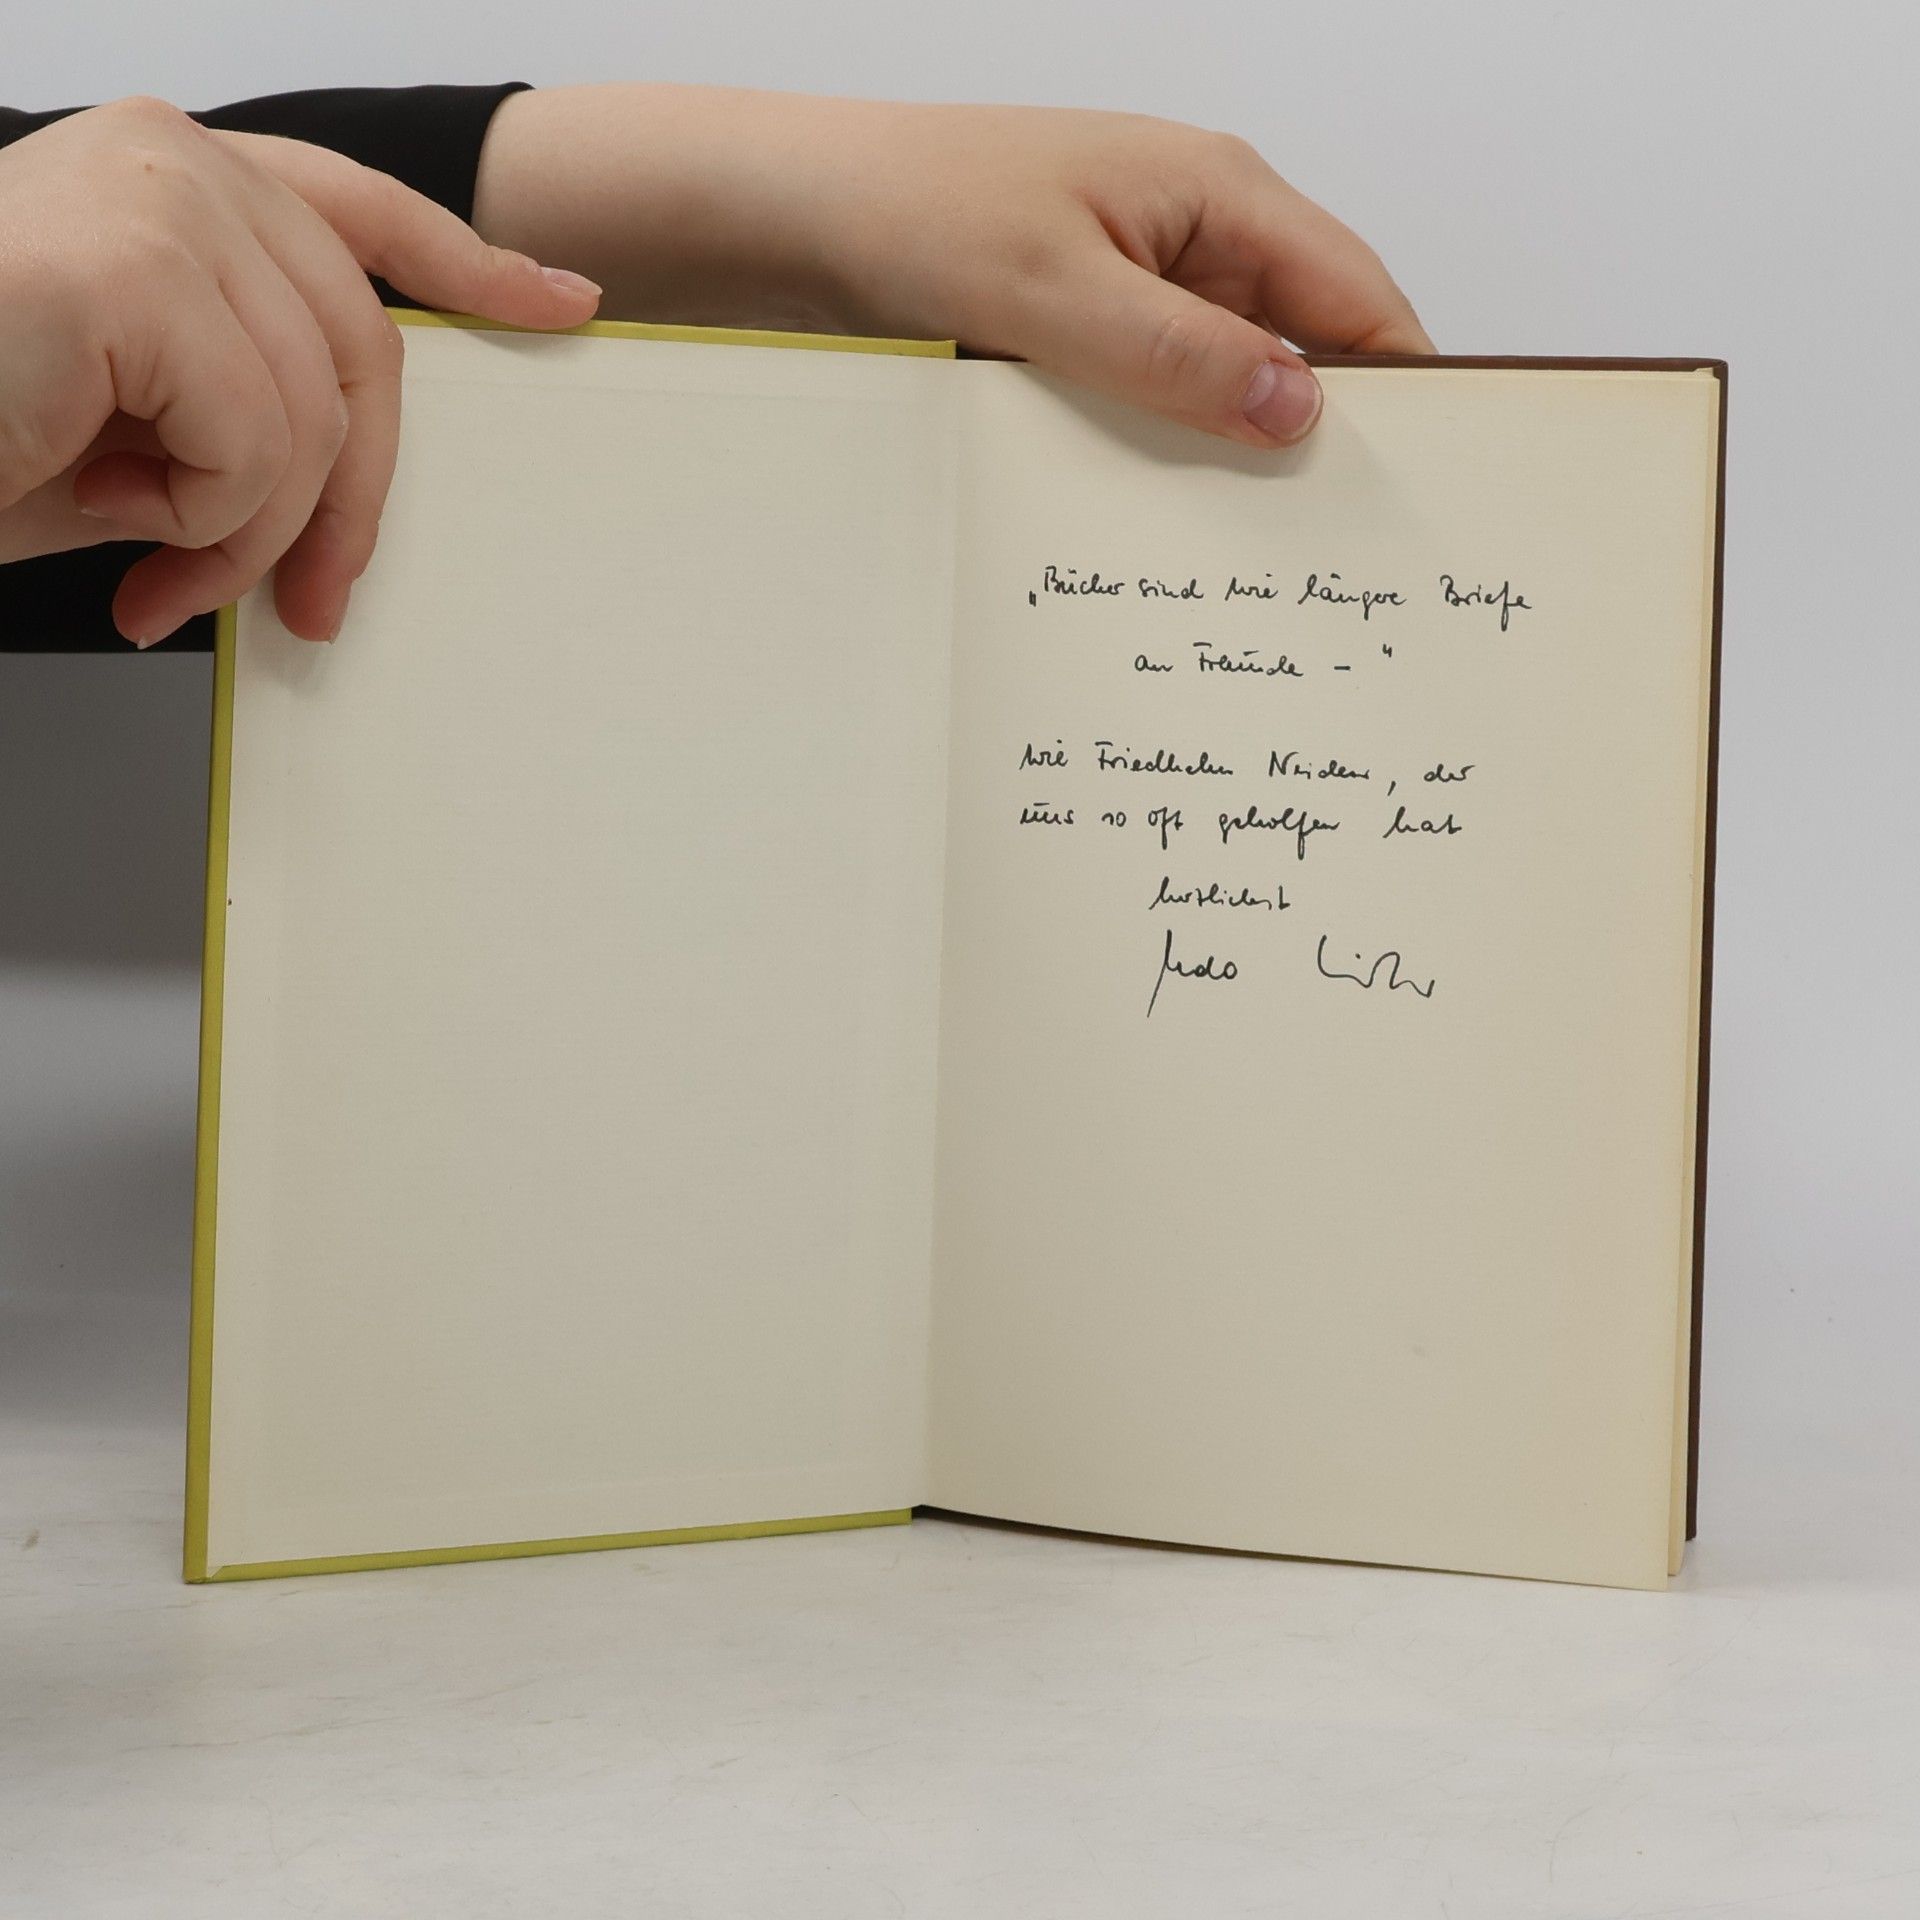 „Bücher sind wie längere Briefe
an Freunde – “
wie Friedhelm Neiden, der
uns so oft geholfen hat
herzlichst
Udo